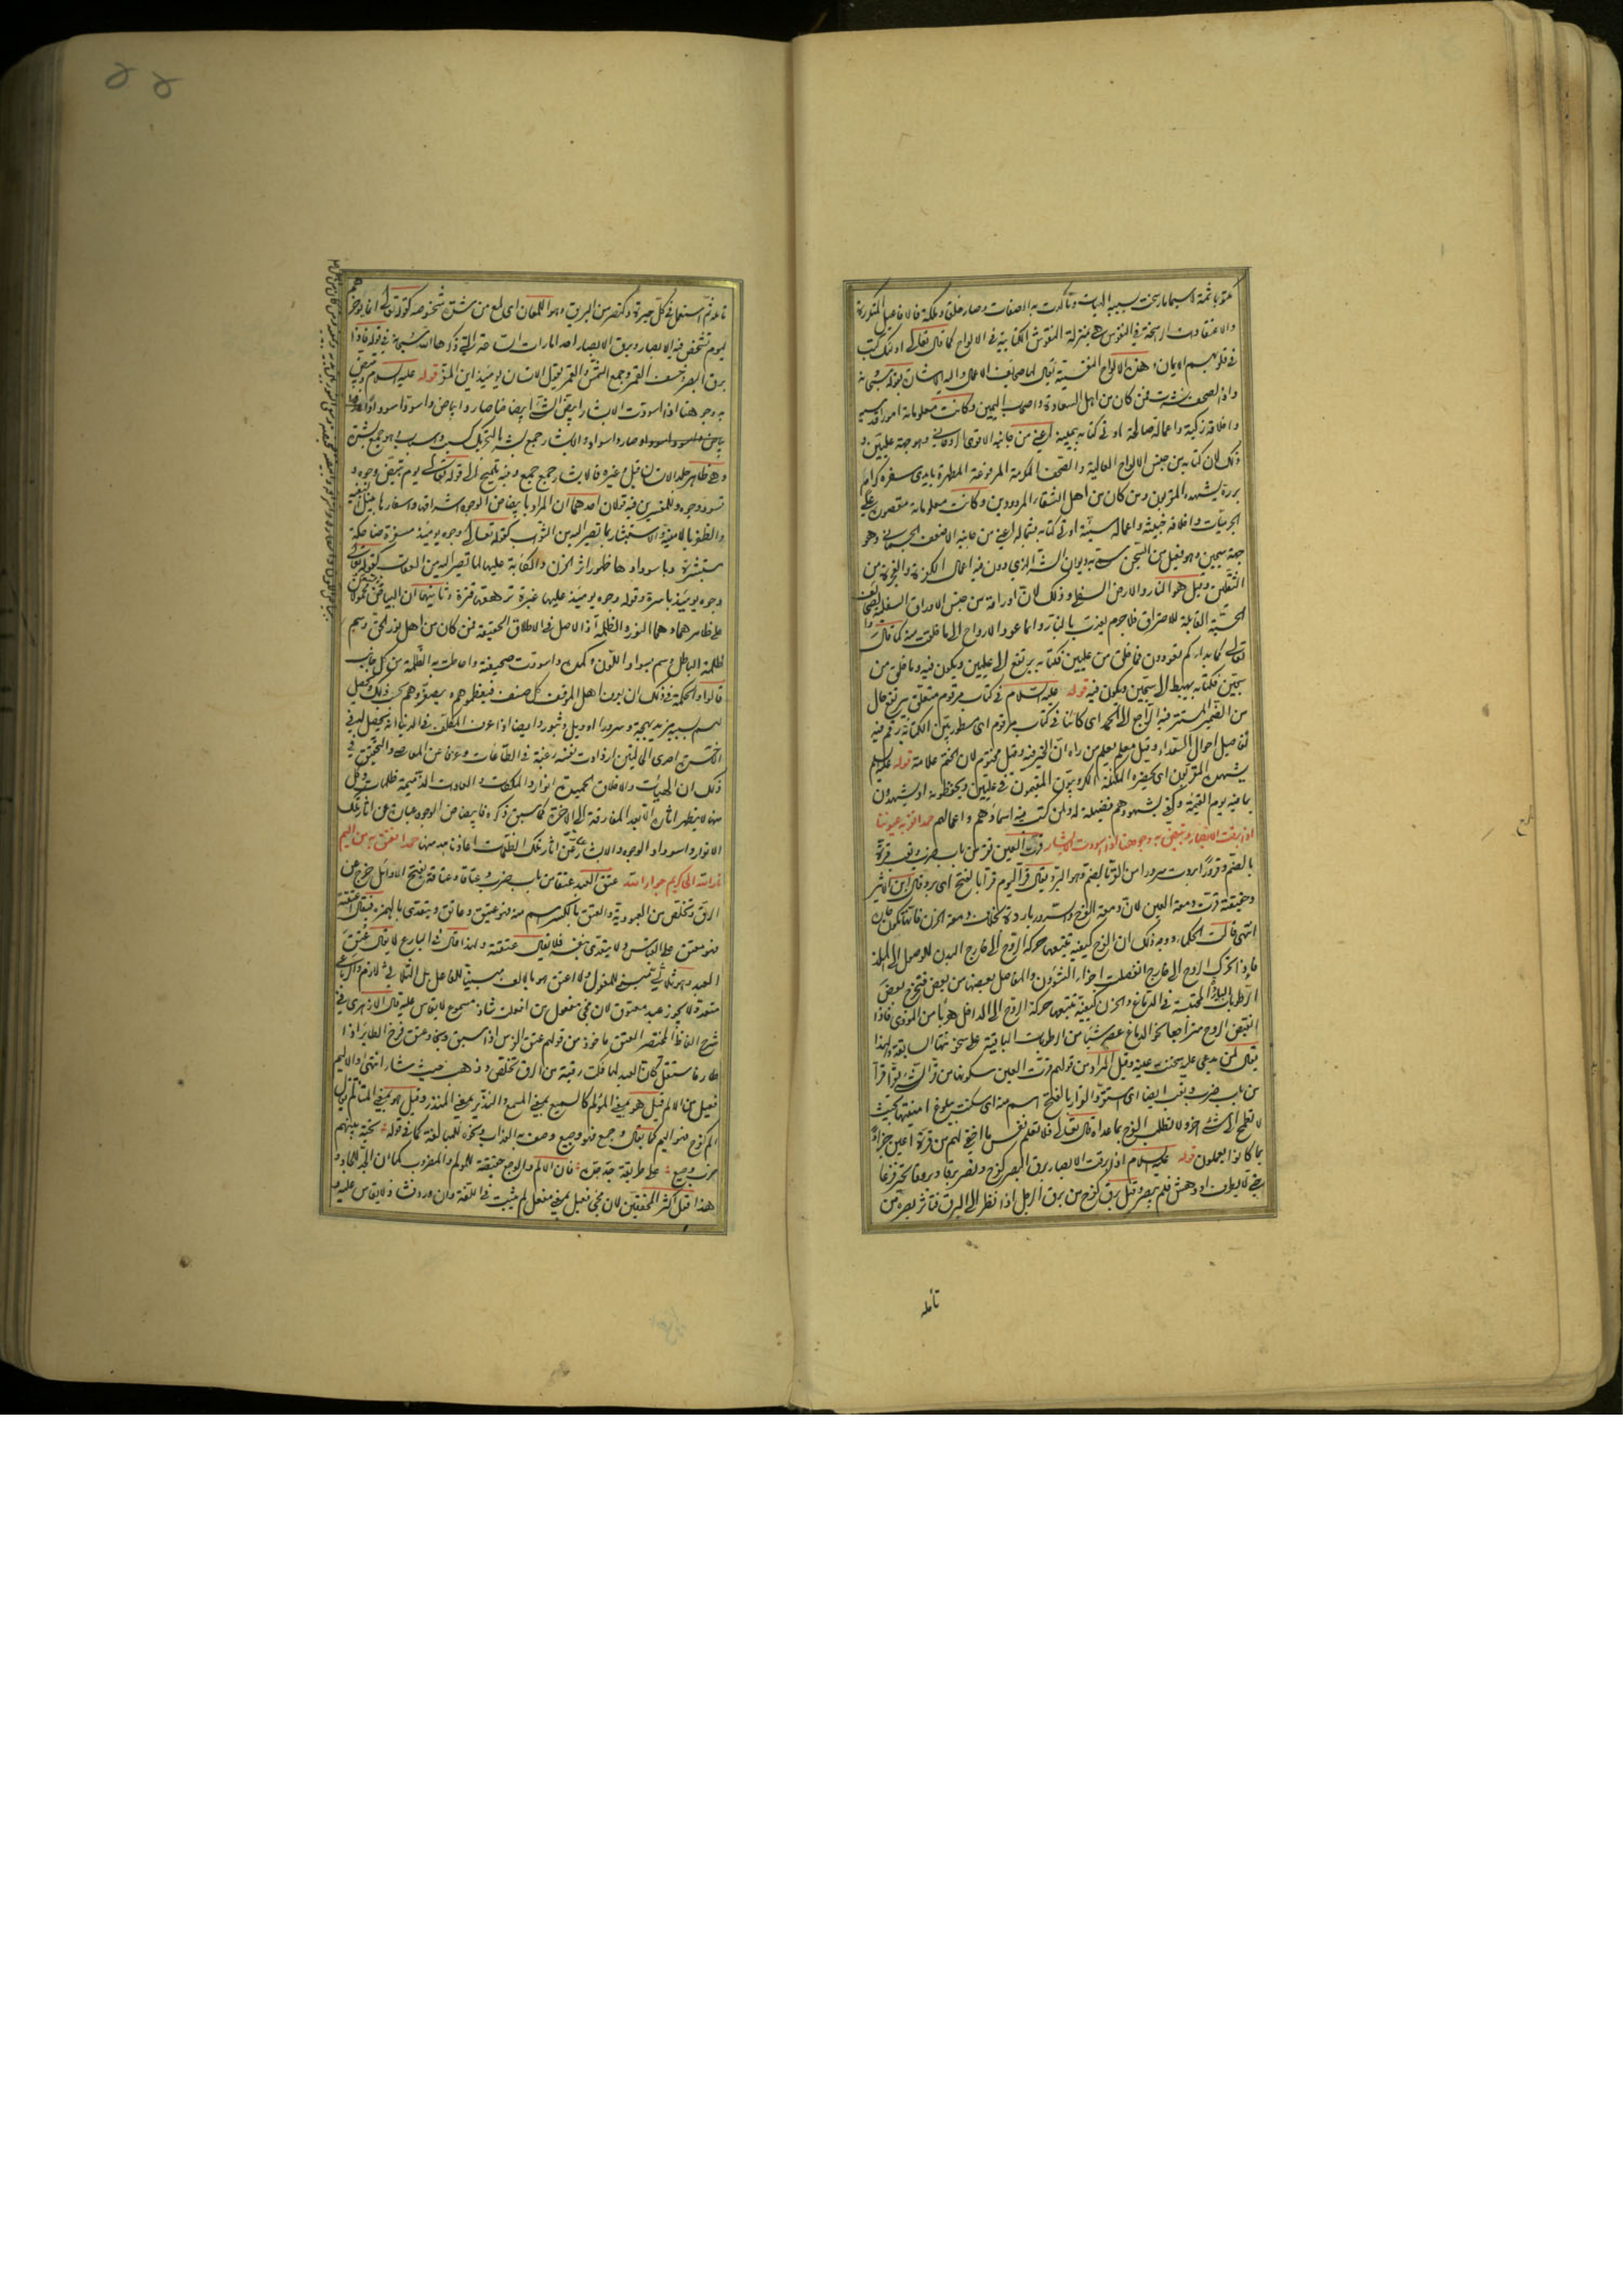 والاعتقادات الراسخة في النفوس هي بمنزلة النقوش الكتابية في الالواح كما قال تعالى اولئك كتب
في قلوبهم الايمان وهذه الالواح النفسية يقال لها صحايف الاعمال واليه الاشارة بقوله سبحانه
واذا الصحف نشرت فمن كان من اهل السعادة واصحاب اليمين وكانت معلوماته امورا قدسية
واخلاقه زكية واعماله صالحة اوتي كتابه بيمينه اعني من جانبه الاقوى الروحاني وهو جهة عليين و
ذلك لان كتابه من جنس الالواح العالية والصحف المكرمة المرفوعة المطهرة بايدي سفرة كرام
بررة يشهده المقربون ومن كان من اهل الشقاء المردودين وكانت معلوماته مقصورة على
الجرميات واخلاقه خبيثة واعماله سيئة اوتي كتابه بشماله اعني من جانبه الاضعف الجسماني وهو
جهة سجين وهو فعيل من السجن سمي به ديوان الشر الذي دون فيه اعمال الكفرة والفجرة من
الثقلين وقيل هو النار والارض السفلى وذلك لان اوراقه من جنس الاوراق السفلية والصحائف
الحسية القابلة للاحتراق فلا جرم يعذب بالنار وانما عود الارواح الى ما خلقت منه كما قال
تعالى كما بدأكم تعودون فما خلق من عليين فكتابه يرتفع الى عليين ويكون فيه وما خلق من
سجين فكتابه يهبط الى سجين ويكون فيه قوله عليه السلام في كتاب مرقوم متعلق بيرتفع حال
من الضمير المستتر فيه الراجع الى الحمد اي كائنا في كتاب مرقوم اي مسطور بين الكتابة رقم فيه
تفاصيل احوال السعداء وقيل معلم يعلم من راه ان الخير فيه وقيل مختوم لان الختم علامة قوله عليه السلام
يشهده المقربون اي يحضره الملئكة الكروبيون المقيمون في عليين ويحفظونه او يشهدون
بما فيه يوم القيمة وكفى بشهودهم فضيلة له ولمن كتب فيه اسماؤهم واعمالهم حمدا تقر به عيوننا
اذا برقت الابصار وتبيض به وجوهنا اذا اسودت الابشار قرت العين تقر من باب ضرب وتعب قرة
بالضم وقرورا بردت سرورا من القر بالضم وهو البرد يقال قر اليوم قرا بالفتح اي برد قال ابن الاثير
وحقيقة قرت دمعة العين لان دمعة الفرح والسرور باردة بخلاف دمعة الحزن فانها تكون حارة
انتهى قالت الحكماء ووجه ذلك ان الفرح كيفية تتبعها حركة الروح الى خارج البدن للوصول الى الملذ
فاذا تحرك الروح الى خارج انفصلت اجزاء الشؤون والمفاصل بعضها من بعض فتخرج بعض
الرطوبات الباردة المحتبسة في الدماغ والحزن كيفية تتبعها حركة الروح الى الداخل هربا من الموذي فاذا
انقبض الروح متراجعا نحو الدماغ عصر شيئا من الرطوبات الباقية على سخونتها السابقة ولهذا
يقال لمن يدعى عليه سخنت عينه وقيل المراد من قولهم قرت العين سكونها من قر الشيء يقر قرا
من باب ضرب وتعب ايضا اي استقر والقرار بالفتح اسم منه اي سكنت ببلوغ امنيتها بحيث
لا تطمح الى شيء اخر ولا تطلب الفرح بما عداه قال تعالى فلا تعلم نفس ما اخفي لهم من قرة اعين جزاء
بما كانوا يعملون قوله عليه السلام اذا برقت الابصار برق البصر كفرح ونصر برقا وبروقا تحير فزعا
حتى لا يطرف او دهش فلم يبصر وقيل برق كفرح من برق الرجل اذا نظر الى البرق فتاثر بصره من
تأمله
تأمله ثم استعمل في كل حيرة وكنصر من البريق وهو اللمعان اي لمع من شدة شخوصه كقوله تعالى انما يؤخرهم
ليوم تشخص فيه الابصار وبرق الابصار احد امارات الساعة التي ذكرها الله سبحانه في قوله فاذا
برق البصر وخسف القمر وجمع الشمس والقمر يقول الانسان يومئذ اين المفر قوله عليه السلام وتبيض
به وجوهنا اذا اسودت الابشار ابيض الشيء ابيضاضا صار ذا بياض واسود اسودادا
وهي ظاهر جلد الانسان قيل وغيره فالابشار جمع جمع وفيه تلميح الى قوله تعالى يوم تبيض وجوه و
تسود وجوه وللمفسرين فيه قولان احدهما ان المراد بابيضاض الوجوه اشراقها واسفارها بنيل البغية
والظفر بالامنية والاستبشار بما تصير اليه من الثواب كقوله تعالى وجوه يومئذ مسفرة ضاحكة
مستبشرة وباسودادها ظهور اثر الحزن والكآبة عليها لما تصير اليه من العقاب كقوله تعالى
وجوه يومئذ باسرة وقوله وجوه يومئذ عليها غبرة ترهقها قترة وثانيهما ان البياض والسواد محمولان
على ظاهرهما وهما النور والظلمة اذ الاصل في الاطلاق الحقيقة فمن كان من اهل نور الحق وسم
ظلمة الباطل وسم بسواد اللون وكمده واسودت صحيفته واحاطت به الظلمة من كل جانب
قالوا والحكمة في ذلك ان يعرف اهل الموقف كل صنف فيعظموهم او يصغروهم بحسب ذلك ويحصل
لهم بسببه مزيد بهجة وسرور او ويل وثبور وايضا اذا عرف المكلف في الدنيا انه يحصل له في
الاخرة احدى الحالتين ازدادت نفسه رغبة في الطاعات وعزفا عن المعاصي والتحقيق في
ذلك ان الهيئات والاخلاق الحميدة انوار والملكات والعادات الذميمة ظلمات وكل
منها لا يظهر اثاره الا بعد المفارقة الى الاخرة كما سبق ذكره فابيضاض الوجوه عبارة عن اثار تلك
الانوار واسوداد الوجوه والابشار عن اثار تلك الظلمات اعاذنا الله منها حمدا نعتق به من اليم
نار الله الى كريم جوار الله عتق العبد عتقا من باب ضرب وعتاقا وعتاقة بفتح الاوائل خرج عن
الرق وتخلص من العبودية والعتق بالكسر اسم منه فهو عتيق وعاتق ويتعدى بالهمزة فيقال اعتقته
فهو معتق على القياس ولا يتعدى بنفسه فلا يقال عتقته ولهذا قال في البارع لا يقال عتق
العبد وهو ثلاثي مبني للمفعول ولا اعتق هو بالالف مبنيا للفاعل بل الثلاثي لازم والرباعي
متعد ولا يجوز عبد معتوق لان مجيء مفعول من افعلت شاذ مسموع لا يقاس عليه قال الازهري في
شرح الفاظ المختصر العتق ماخوذ من قولهم عتق الفرس اذا سبق ونجا وعتق فرخ الطائر اذا
طار فاستقل كان العبد لما فكت رقبته من الرق تخلص وذهب حيث شاء انتهى والاليم
فعيل من الالم قيل هو بمعنى المؤلم كالسميع بمعنى المسمع والنذير بمعنى المنذر وقيل هو بمعنى المتألم يقال
الم كفرح فهو اليم كما يقال وجع فهو وجيع وصف به العذاب ونحوه للمبالغة كما في قوله تحية بينهم
ضرب وجيع على طريقة جد جده فان الالم والوجع حقيقة للمؤلم والمضروب كما ان الجد للجاد و
هذا قول اكثر المحققين لان مجيء فعيل بمعنى مفعل لم يثبت في اللغة وان ورد فشاذ لا يقاس عليه